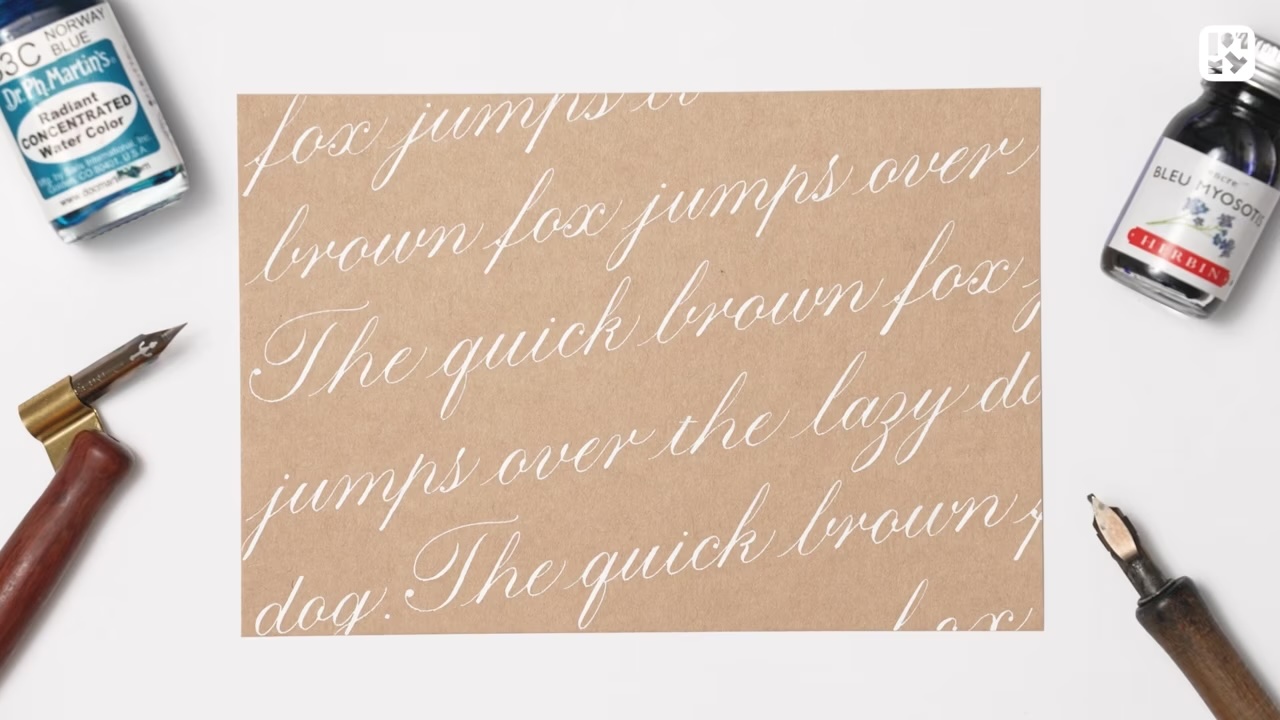 53C NORWAY
BLUE
Dr. Ph. Martin's
Radiant
CONCENTRATED
Water Color
www.docmartins.com
fox jumps
brown fox jumps over
The quick brown fox
jumps over the lazy do
dog. The quick brown
fox
encre
BLEU MYOSOTIS
HERBIN